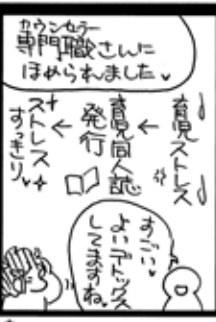 カウンセラー
専門職さんに
ほめられました♥
育児ストレス
↓
育児同人誌
発行
↓
ストレス
すっきり♥
すごい♥
よいデトックス
してますね♥